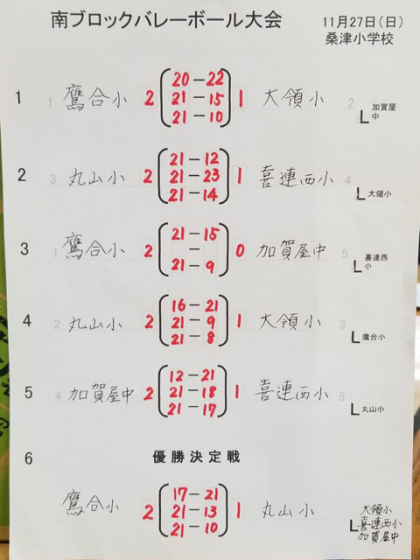 南ブロックバレーボール大会
11月27日(日)
桑津小学校
1 鷹合小 2 20-22 1 大領小
21-15
21-10
L 加賀屋中
2 丸山小 2 21-12 1 喜連西小
21-23
21-14
L 大領小
3 鷹合小 2 21-15 0 加賀屋中
-
21-9
L 喜連西小
4 丸山小 2 16-21 1 大領小
21-9
21-8
L 鷹合小
5 加賀屋中 2 12-21 1 喜連西小
21-18
21-17
L 丸山小
6 優勝決定戦
鷹合小 2 17-21 1 丸山小
21-13
21-10
L 大領小
喜連西小
加賀屋中